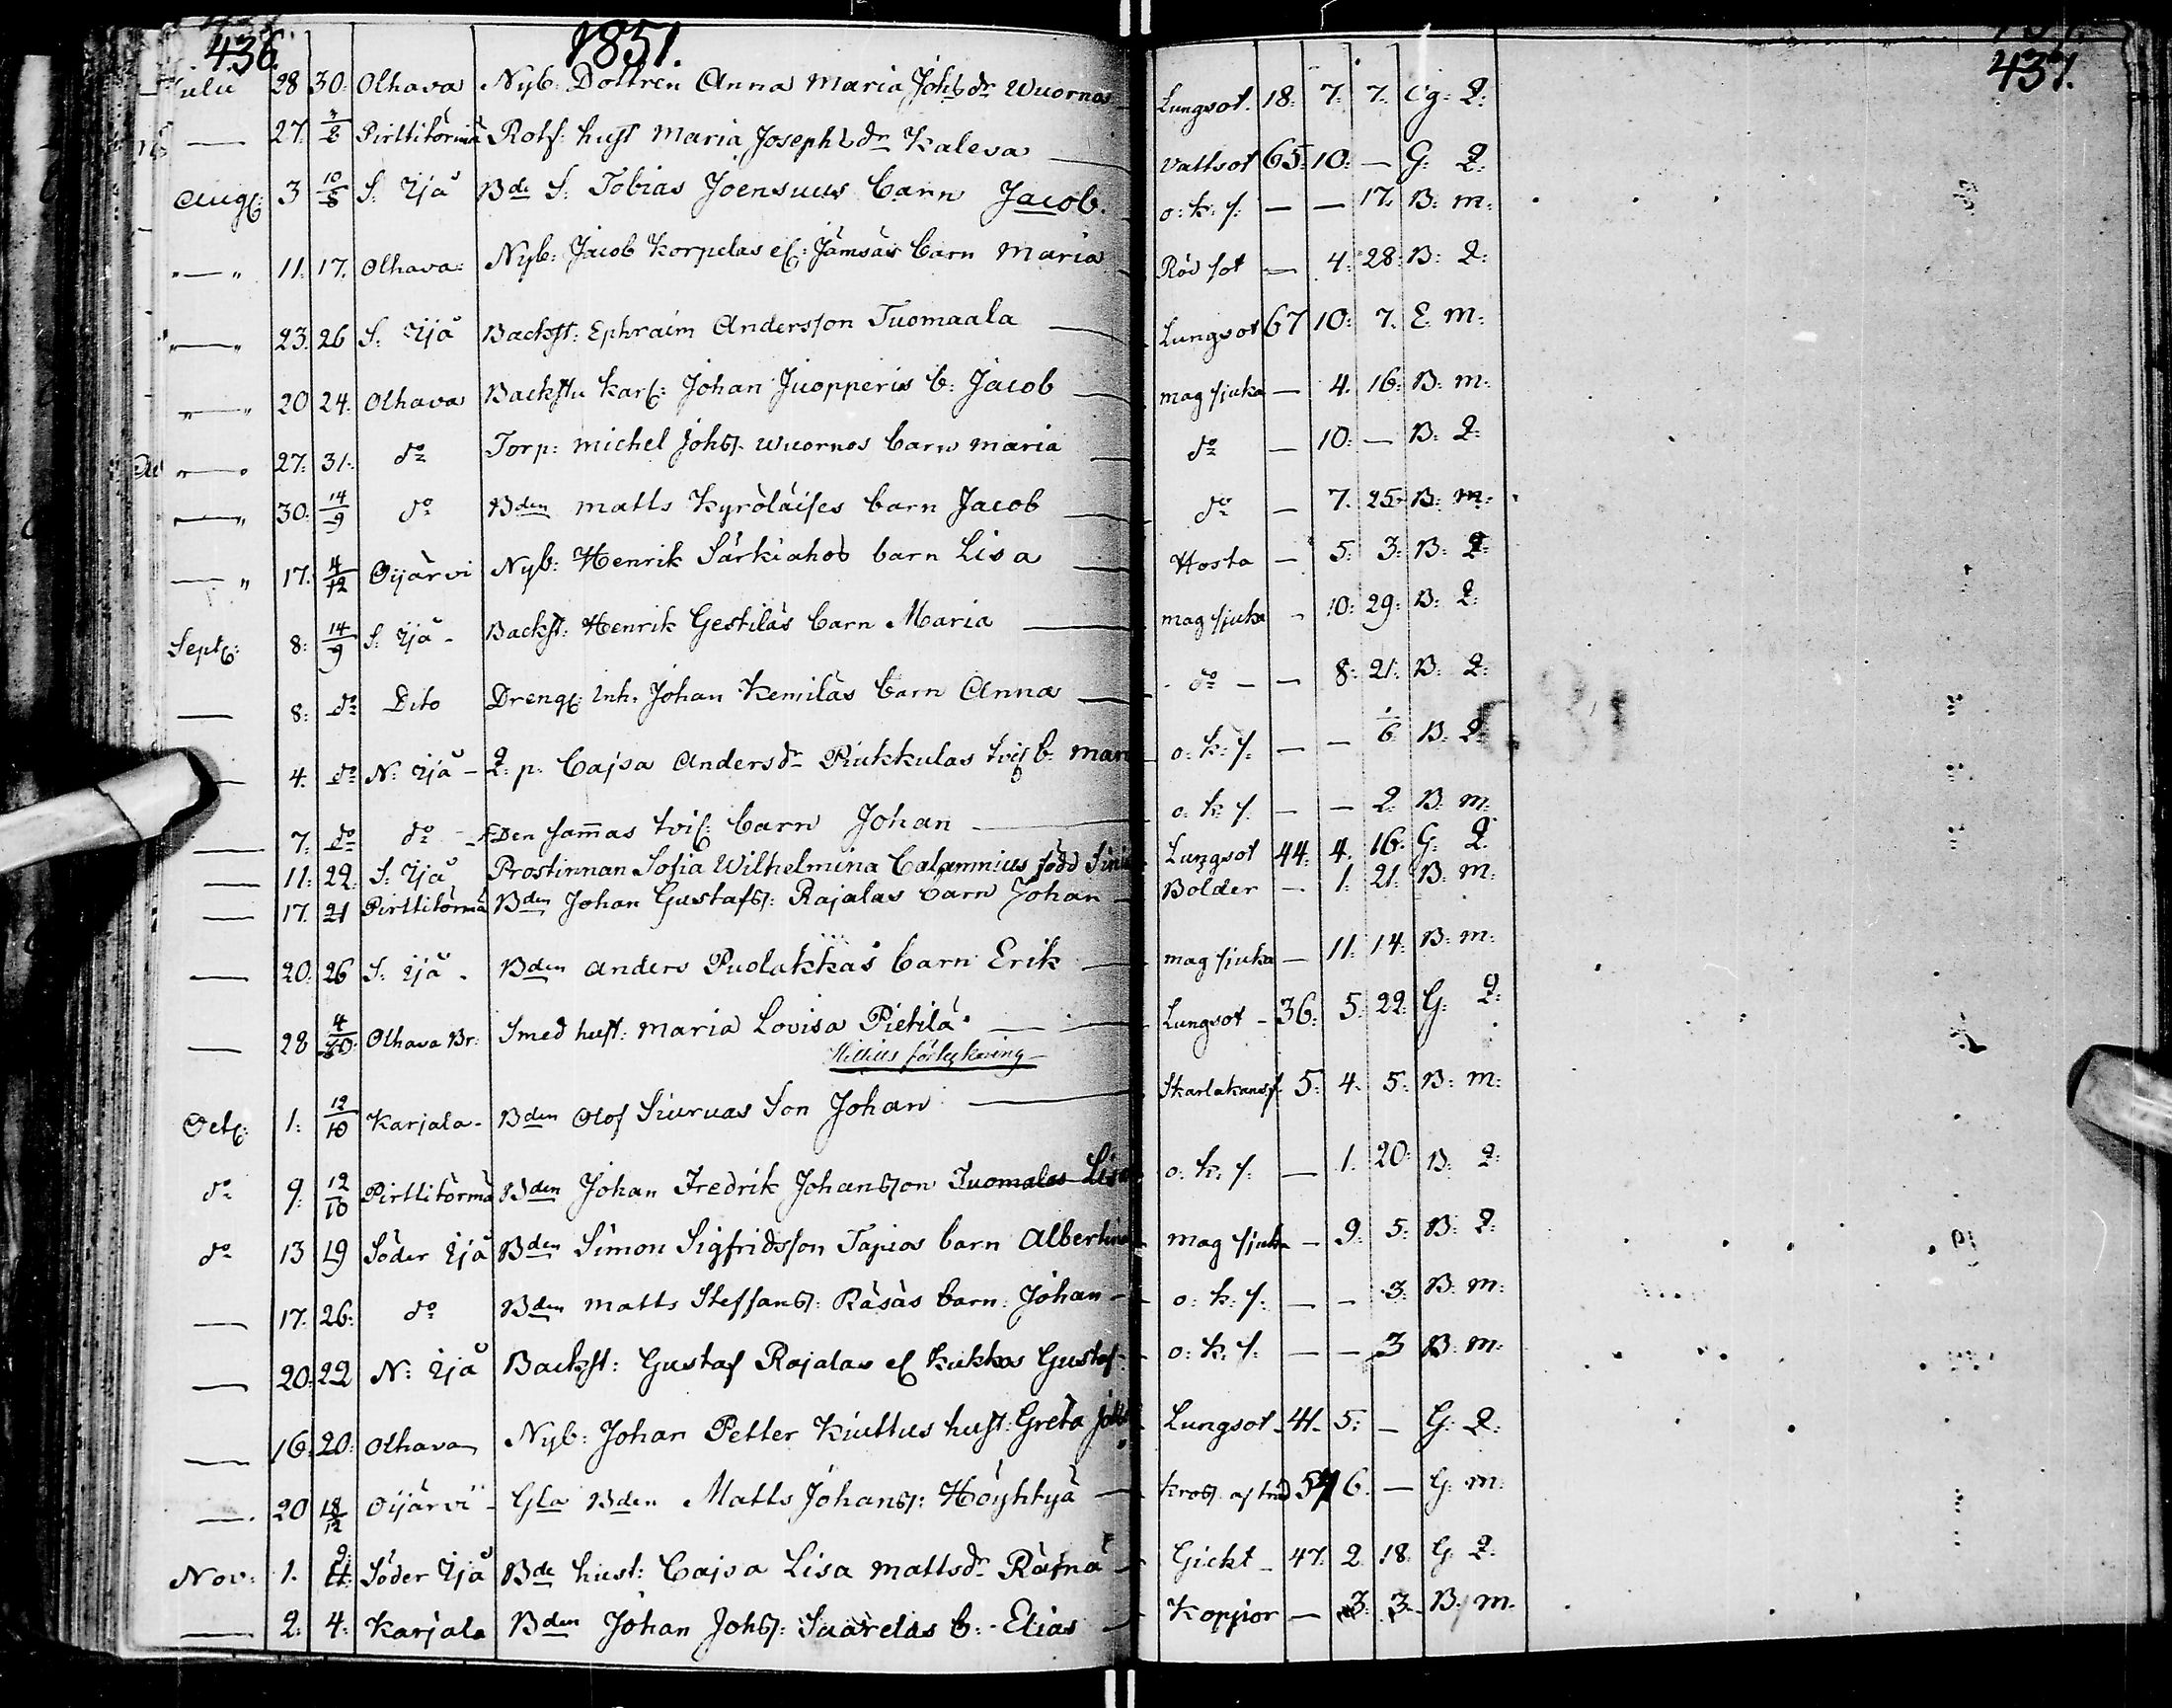 436. 1851. 437.
Julii 28 30. Olhava Nyb: Dottren Anna Maria Johsdr Wuornos Lungsot. 18: 7: 7: Og: Q:
— 27. 3/8 Pirttitörmä Rotf: hust Maria Josephsdr Kaleva — Vattsot 65: 10: — G: Q:
Aug: 3 10/8 S: Ijå Bde S: Tobias Joensuus barn Jacob. o: k: s: — — 17. B: m:
" — " 11. 17. Olhava: Nyb: Jacob Korpelas el: Jämsäs barn Maria — Röd sot — 4: 28: B: Q:
" — " 23. 26 S: Ijå Backst: Ephraim Andersson Tuomaala — Lungsot 67 10: 7. E. m:
" — " 20 24. Olhava Backstu Karl: Johan Juopperis b: Jacob — mag sjuka — 4. 16: B: m:
" — " 27: 31. do Torp: Michel Johss. Wuornos barn Maria — do — 10: — B: Q:
" — " 30. 14/9 do Bden Matts Kyröläises barn Jacob — do — 7. 25. B: m:
— " 17. 4/12 Oijärvi Nyb: Henrik Särkiahos barn Lisa — Hosta — 5: 3: B: Q:
Sept: 8: 14/9 S: Ijå - Backst: Henrik Gestiläs barn Maria — mag sjuka - 10: 29: B: Q:
— 8: do Dito Dreng: Inh. Johan Kemiläs barn Anna — do — — 8: 21: B: Q:
— 4. do N: Ijå - Q: p: Cajsa Andersdr Riukkulas tvil b: Mari o: k: s: — — 6 B: Q:
— 7. do do - Den sammas tvil: barn Johan — o: k: s: — — 2: B: m:
— 11: 22: S: Ijå Prostinnan Sofia Wilhelmina Calamnius född Lungsot 44: 4. 16: G: Q:
— 17. 21 Pirttitörmä Bden Johan Gustafss: Rajalas barn Johan — Bolder — 1: 21: B: m:
— 20: 26 S: Ijå - Bden Anders Puolakkas barn Erik — mag sjuka — 11: 14: B: m:
— 28 4/10 Olhava Br: Smed hust: Maria Lovisa Pietilä — Lungsot - 36: 5: 22: G: Q:
Octb: 1: 12/10 Karjala - Bden Olof Siuruas Son Johan — Skarlakansf. 5: 4. 5: B: m:
do 9: 12/10 Pirttitörmä Bden Johan Fredrik Johansson Tuomalas Lisa o: k: s: — 1: 20: B: Q:
do 13 19 Söder Ijå Bden Simon Sigfridsson Tapios barn Albertina mag sjuka — 9: 5: B: Q:
— 17: 26: do Bden Matts Steffanss: Räsäs barn: Johan — o: k: s: — — 3: B: m:
— 20: 22 N: Ijå Backst: Gustaf Rajalas el Kukkos Gustaf - o: k: s: — — 3 B: m:
— 16: 20: Olhava Nyb: Johan Petter Kiuttus hust: Greta Lungsot - 41. 5: — G: Q:
— 20 18/12 Oijärvi - Gla Bden Matts Johanss: Höyhtyä — 6. — G: m:
Nov: 1. 9/11 Söder Ijå Bde hust: Cajsa Lisa Mattsdr Rätnä — Gickt - 47. 2 18. G. Q:
— 2: 4: Karjala Bden Johan Johss: Saarelas b: - Elias — Koppor — 3: 3. B: m.